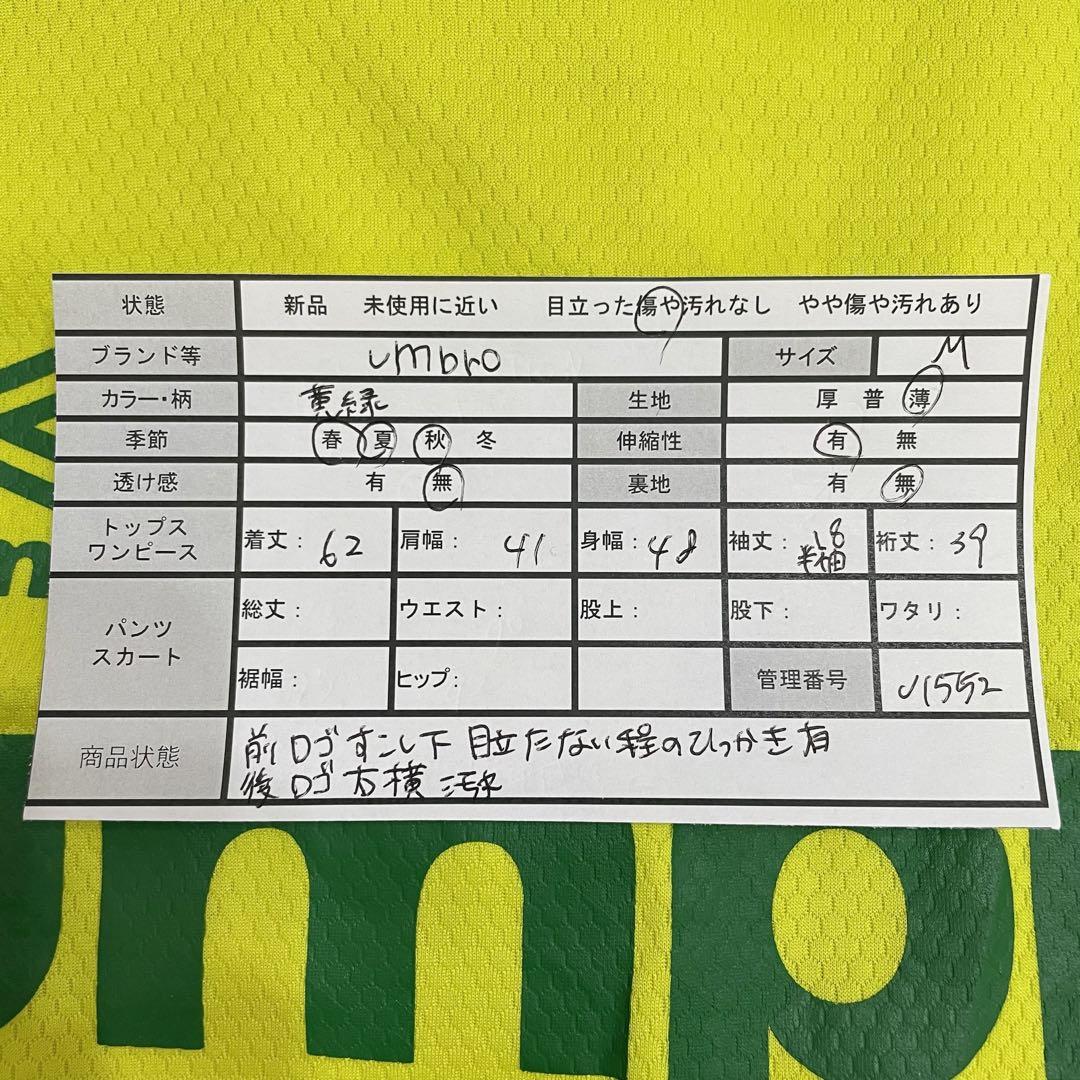 状態 新品 未使用に近い 目立った傷や汚れなし やや傷や汚れあり
ブランド等 umbro サイズ M
カラー・柄 黄緑 生地 厚 普 薄
季節 春 夏 秋 冬 伸縮性 有 無
透け感 有 無 裏地 有 無
トップス
ワンピース
着丈: 62 肩幅: 41 身幅: 48 袖丈: 18 裄丈: 39
半袖
パンツ
スカート
総丈: ウエスト: 股上: 股下: ワタリ:
裾幅: ヒップ: 管理番号 J1552
商品状態
前ロゴすこし下 目立たない程のひっかき有
後ロゴ右横 汚れ
mp